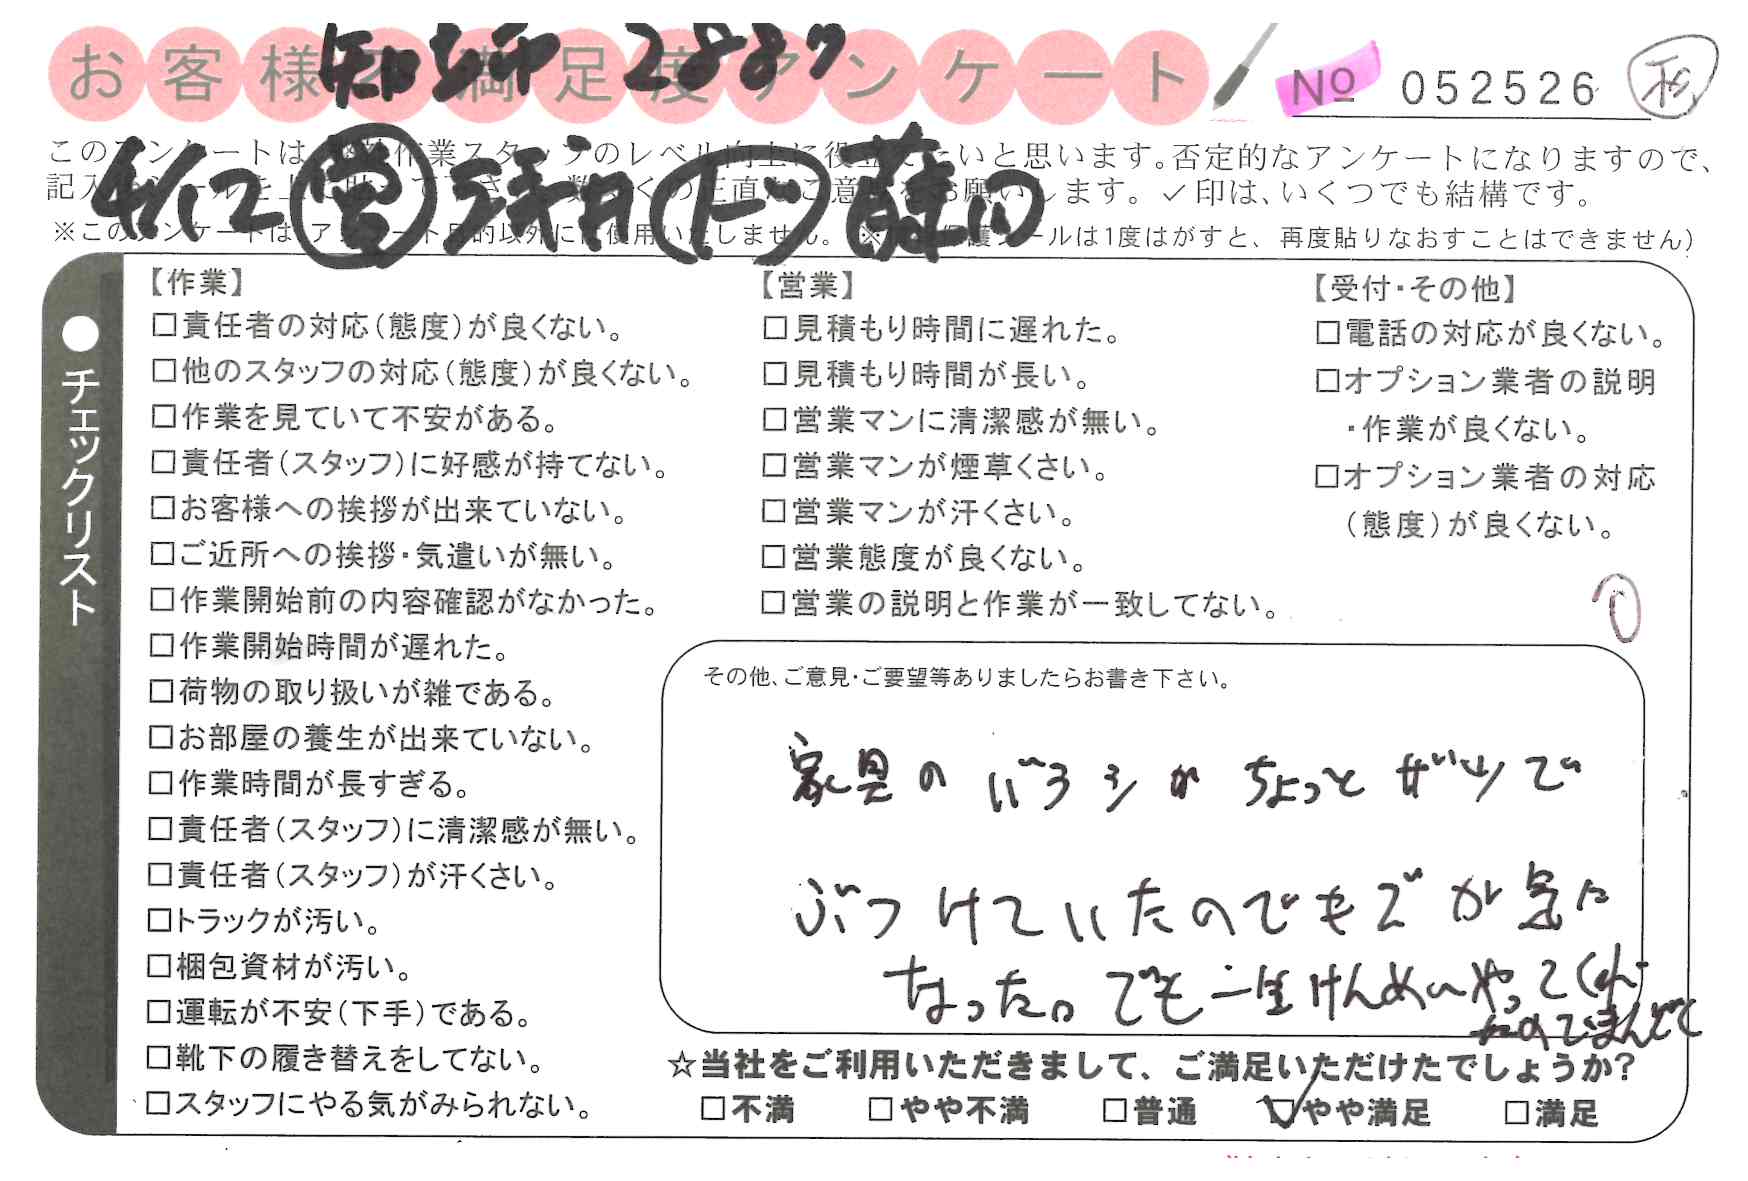 お客様不満足度アンケート
2887
No 052526
4/12 営
このアンケートは、 作業スタッフのレベル向上に役立てたいと思います。否定的なアンケートになりますので、
お願いします。✓印は、いくつでも結構です。
※このアンケートは、アンケート目的以外には使用いたしません。 保護シールは1度はがすと、再度貼りなおすことはできません)
●チェックリスト
【作業】
□責任者の対応(態度)が良くない。
□他のスタッフの対応(態度)が良くない。
□作業を見ていて不安がある。
□責任者(スタッフ)に好感が持てない。
□お客様への挨拶が出来ていない。
□ご近所への挨拶・気遣いが無い。
□作業開始前の内容確認がなかった。
□作業開始時間が遅れた。
□荷物の取り扱いが雑である。
□お部屋の養生が出来ていない。
□作業時間が長すぎる。
□責任者(スタッフ)に清潔感が無い。
□責任者(スタッフ)が汗くさい。
□トラックが汚い。
□梱包資材が汚い。
□運転が不安(下手)である。
□靴下の履き替えをしてない。
□スタッフにやる気がみられない。
【営業】
□見積もり時間に遅れた。
□見積もり時間が長い。
□営業マンに清潔感が無い。
□営業マンが煙草くさい。
□営業マンが汗くさい。
□営業態度が良くない。
□営業の説明と作業が一致してない。
【受付・その他】
□電話の対応が良くない。
□オプション業者の説明
・作業が良くない。
□オプション業者の対応
(態度)が良くない。
その他、ご意見・ご要望等ありましたらお書き下さい。
家具のバラシがちょっとザツで
ぶつけていたのでキズが気に
なった。でも一生けんめいやってくれ
たのでまんぞく
☆当社をご利用いただきまして、ご満足いただけたでしょうか?
□不満 □やや不満 □普通 ☑やや満足 □満足